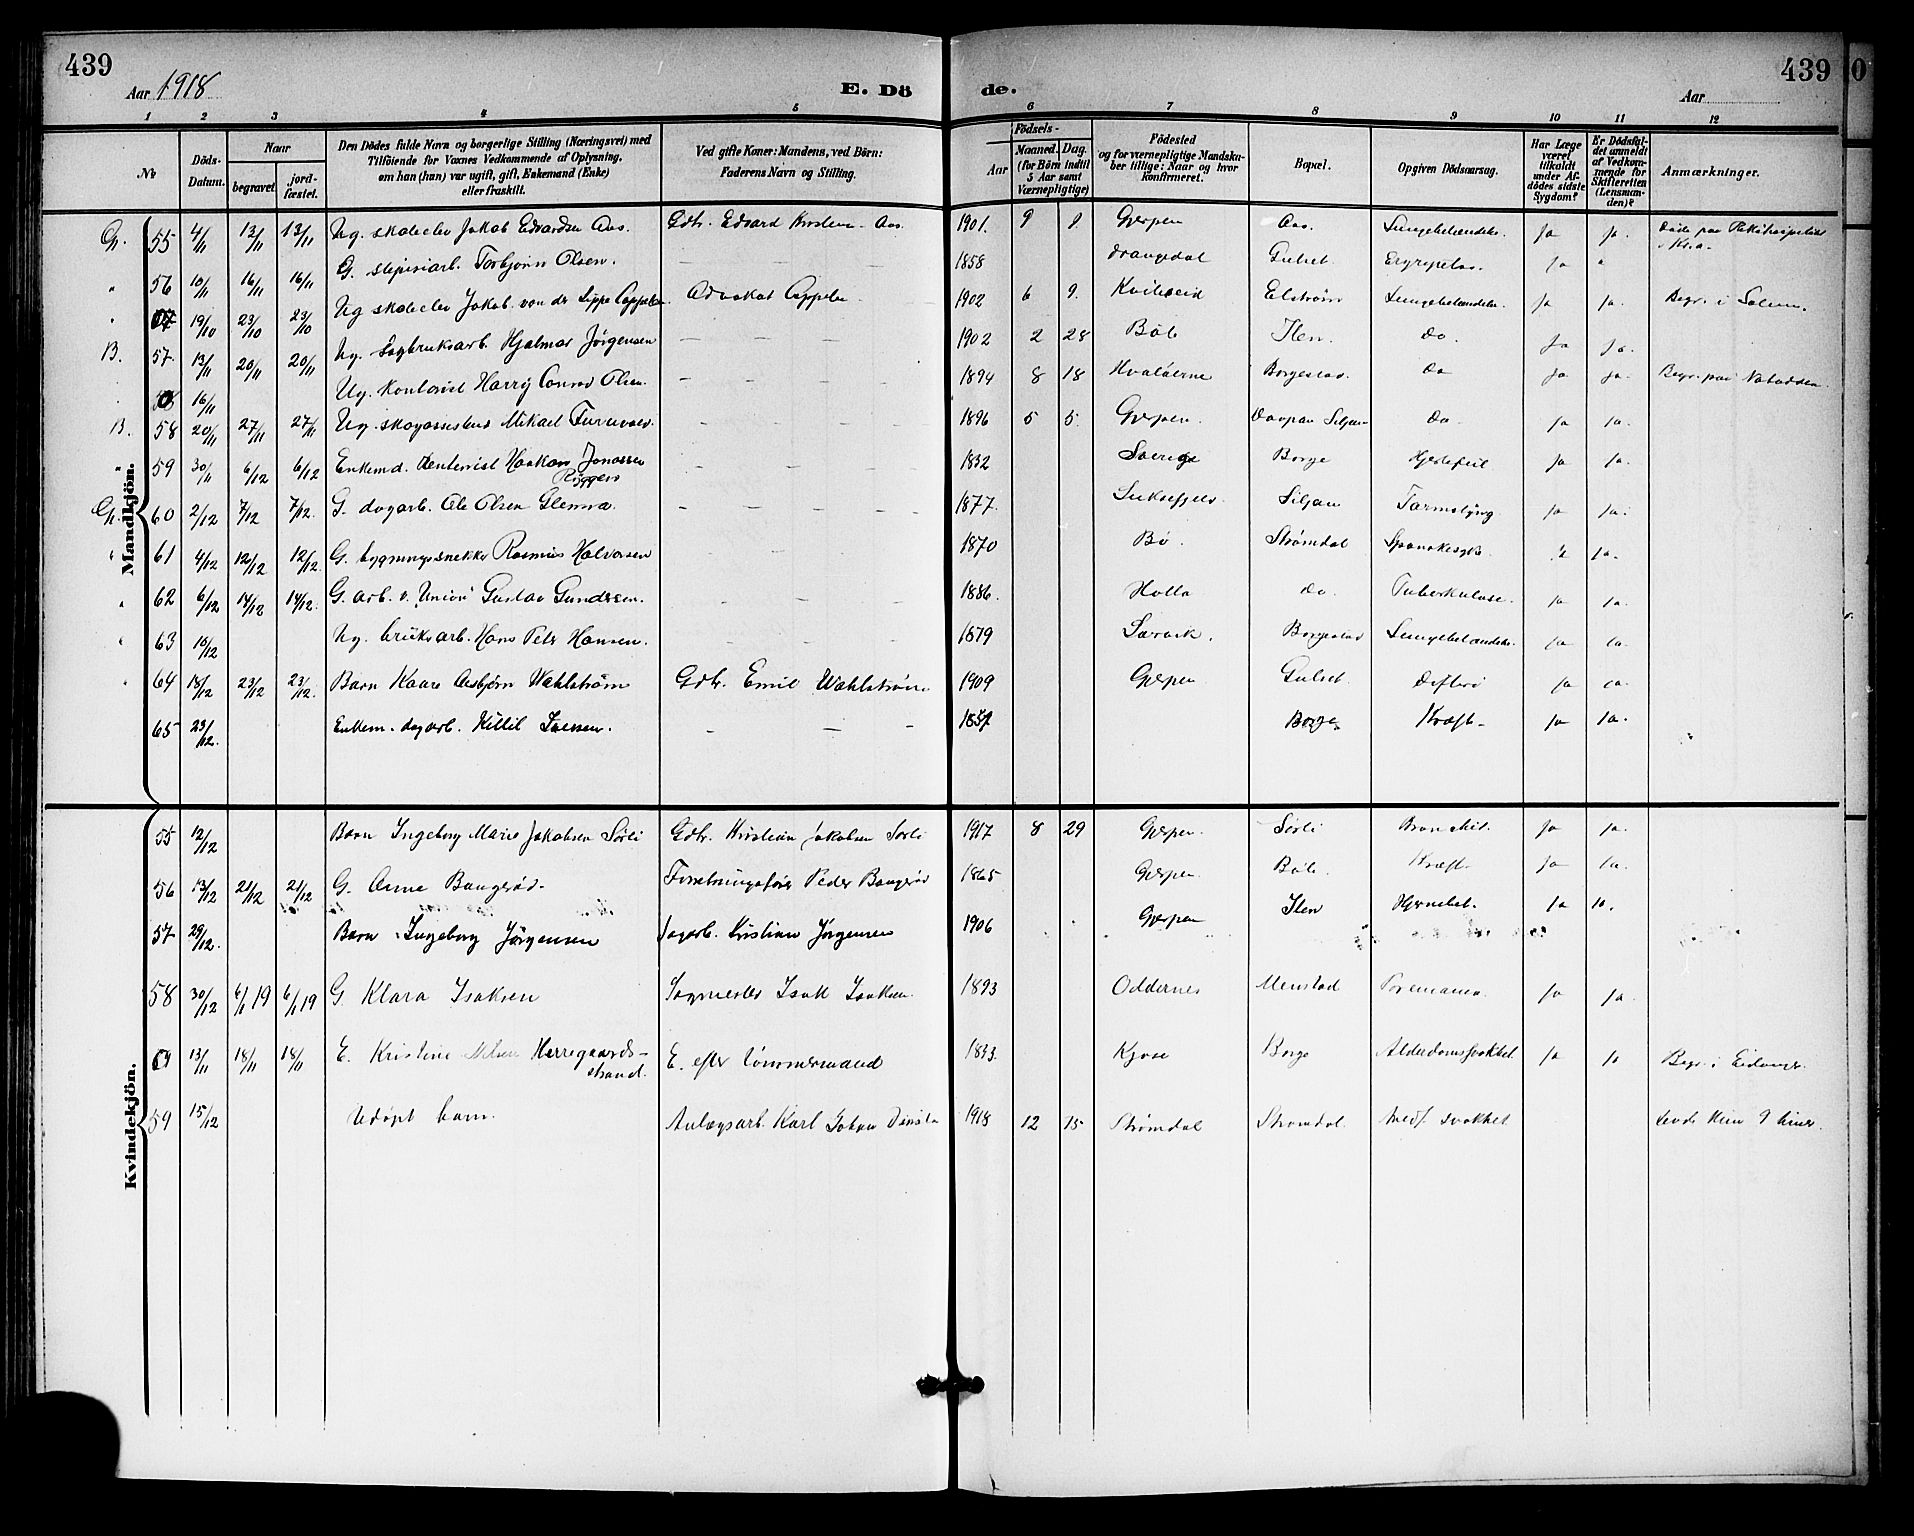 439
Aar 1918
E. Dö
de.
439
Aar
0
1 2 3 4 5 6 7 8 9 10 11 12
№
Döds-Datum.
Naar
begravet. jord-fæstet.
Den Dödes fulde Navn og borgerlige Stilling (Næringsvei) med
Tilföiende for Voxnes Vedkommende af Oplysning,
om han (hun) var ugift, gift, Enkemand (Enke)
eller fraskilt.
Ved gifte Koner: Mandens, ved Börn:
Faderens Navn og Stilling.
Födsels-
Aar
Maaned. Dag.
(for Börn indtil
5 Aar samt
Værnepligtige)
Födested
og for værnepligtige Mandska-
ber tillige: Naar og hvor
konfirmeret.
Bopæl.
Opgiven Dödsaarsag.
Har Læge
været
tilkaldt
under Af-
dödes sidste
Sygdom?
Er Dödsfal-
det anmeldt
af Vedkom-
mende for
Skifteretten
(Lensman-
den)?
Anmærkninger.
Mandkjön.
G. 55 4/11 13/11 13/11 Ug. skoleelev Jakob Edvardsen Aas. Gdbr. Edvard Aas 1901. 9 9. Gjerpen Aas. Lungebetændelse. ja ja. Døde paa
" 56 10/11 16/11 16/11 G. sliperiarb. Torbjørn Olsen. — — 1858 Drangedal Gulset. ja "
" 19/10 23/10 23/10 Ug skoleelev Jakob von der Lippe Cappelen Advokat Cappelen 1902 6 9. Kviteseid Elstrøm Lungebetændelse. ja ja. Begr. i Solum.
B. 57 13/11 20/11 20/11 Ug. Sagbruksarb. Hjalmar Jørgensen — — — 1902 2 28 Bøle Ilen. do. ja ja.
16/11 Ug. kontorist Harry Conrad Olsen. — — — 1894 8 18 Hvaløerne Borgestad. do ja ja. Begr. paa Notodden.
B. 58 20/11 27/11 27/11 Ug. skogassistent Mikael Furuvald. — — — 1896 5 5. Gjerpen. Siljan do. ja ja.
" 59 30/11 6/12 6/12 Enkemd. Haakon Jonassen — — — 1832 Sverige Borge Hjertefeil ja ja.
G. 60 2/12 7/12 7/12. G. dagarb. Ole Olsen — — — 1877. Luksefjeld. Siljan Tarmslyng. ja ja.
" 61 4/12 12/12 12/12. G. bygningssnekker Rasmus Halvorsen — — — 1870 Bø. Strømdal Spanskesyke. ja.
" 62 6/12 14/12 14/12. G. arb. v. "Union" Gustav Gundersen. — — — 1886. Holla do. Tuberkulose. ja ja.
" 63 10/12 Ug. bruksarb. Hans Peter Hansen. — — — 1879 Larvik. Borgestad Lungebetændelse. ja ja.
" 64 18/12 23/12 23/12. Barn Kaare Asbjørn Wahlstrøm Gdbr. Emil Wahlstrøm 1909 Gjerpen Gulset. Difteri ja ja.
65 23/12. Enkem. dagarb. Kittil Iversen. — — — Borge Kræft. ja ja.
Kvindekjön.
55 12/12 Barn Ingeborg Marie Jakobsen Sørli Gdbr. Kristian Jakobsen Sørli 1917 8 29 Gjerpen. Sørli Bronchit. ja ja.
56 13/12 21/12 21/12 G. Anne Baugerød. Peder Baugerød 1865 Gjerpen. Bøle. Kræft. ja ja.
57 29/12. Barn Ingeborg Jørgensen Dagarb. Kristian Jørgensen 1906 Gjerpen Ilen ja ja.
58 30/12 6/1 19 6/1 19 G. Klara Isaksen Sagmester Isak Isaksen. 1893 Oddernes Menstad ja ja.
13/11 18/11 18/11 E. Kristine Nilsen Herregaards-
strand. E. efter tømmermand 1833. Kjose Borge Alderdomssvakhet. ja ja Begr. i Eidanger.
59 15/12 Udøpt barn. Anlægsarb. Karl Johan 1918 12 15 Strømdal Strømdal. Medf. svakhet Levde kun 9 timer.